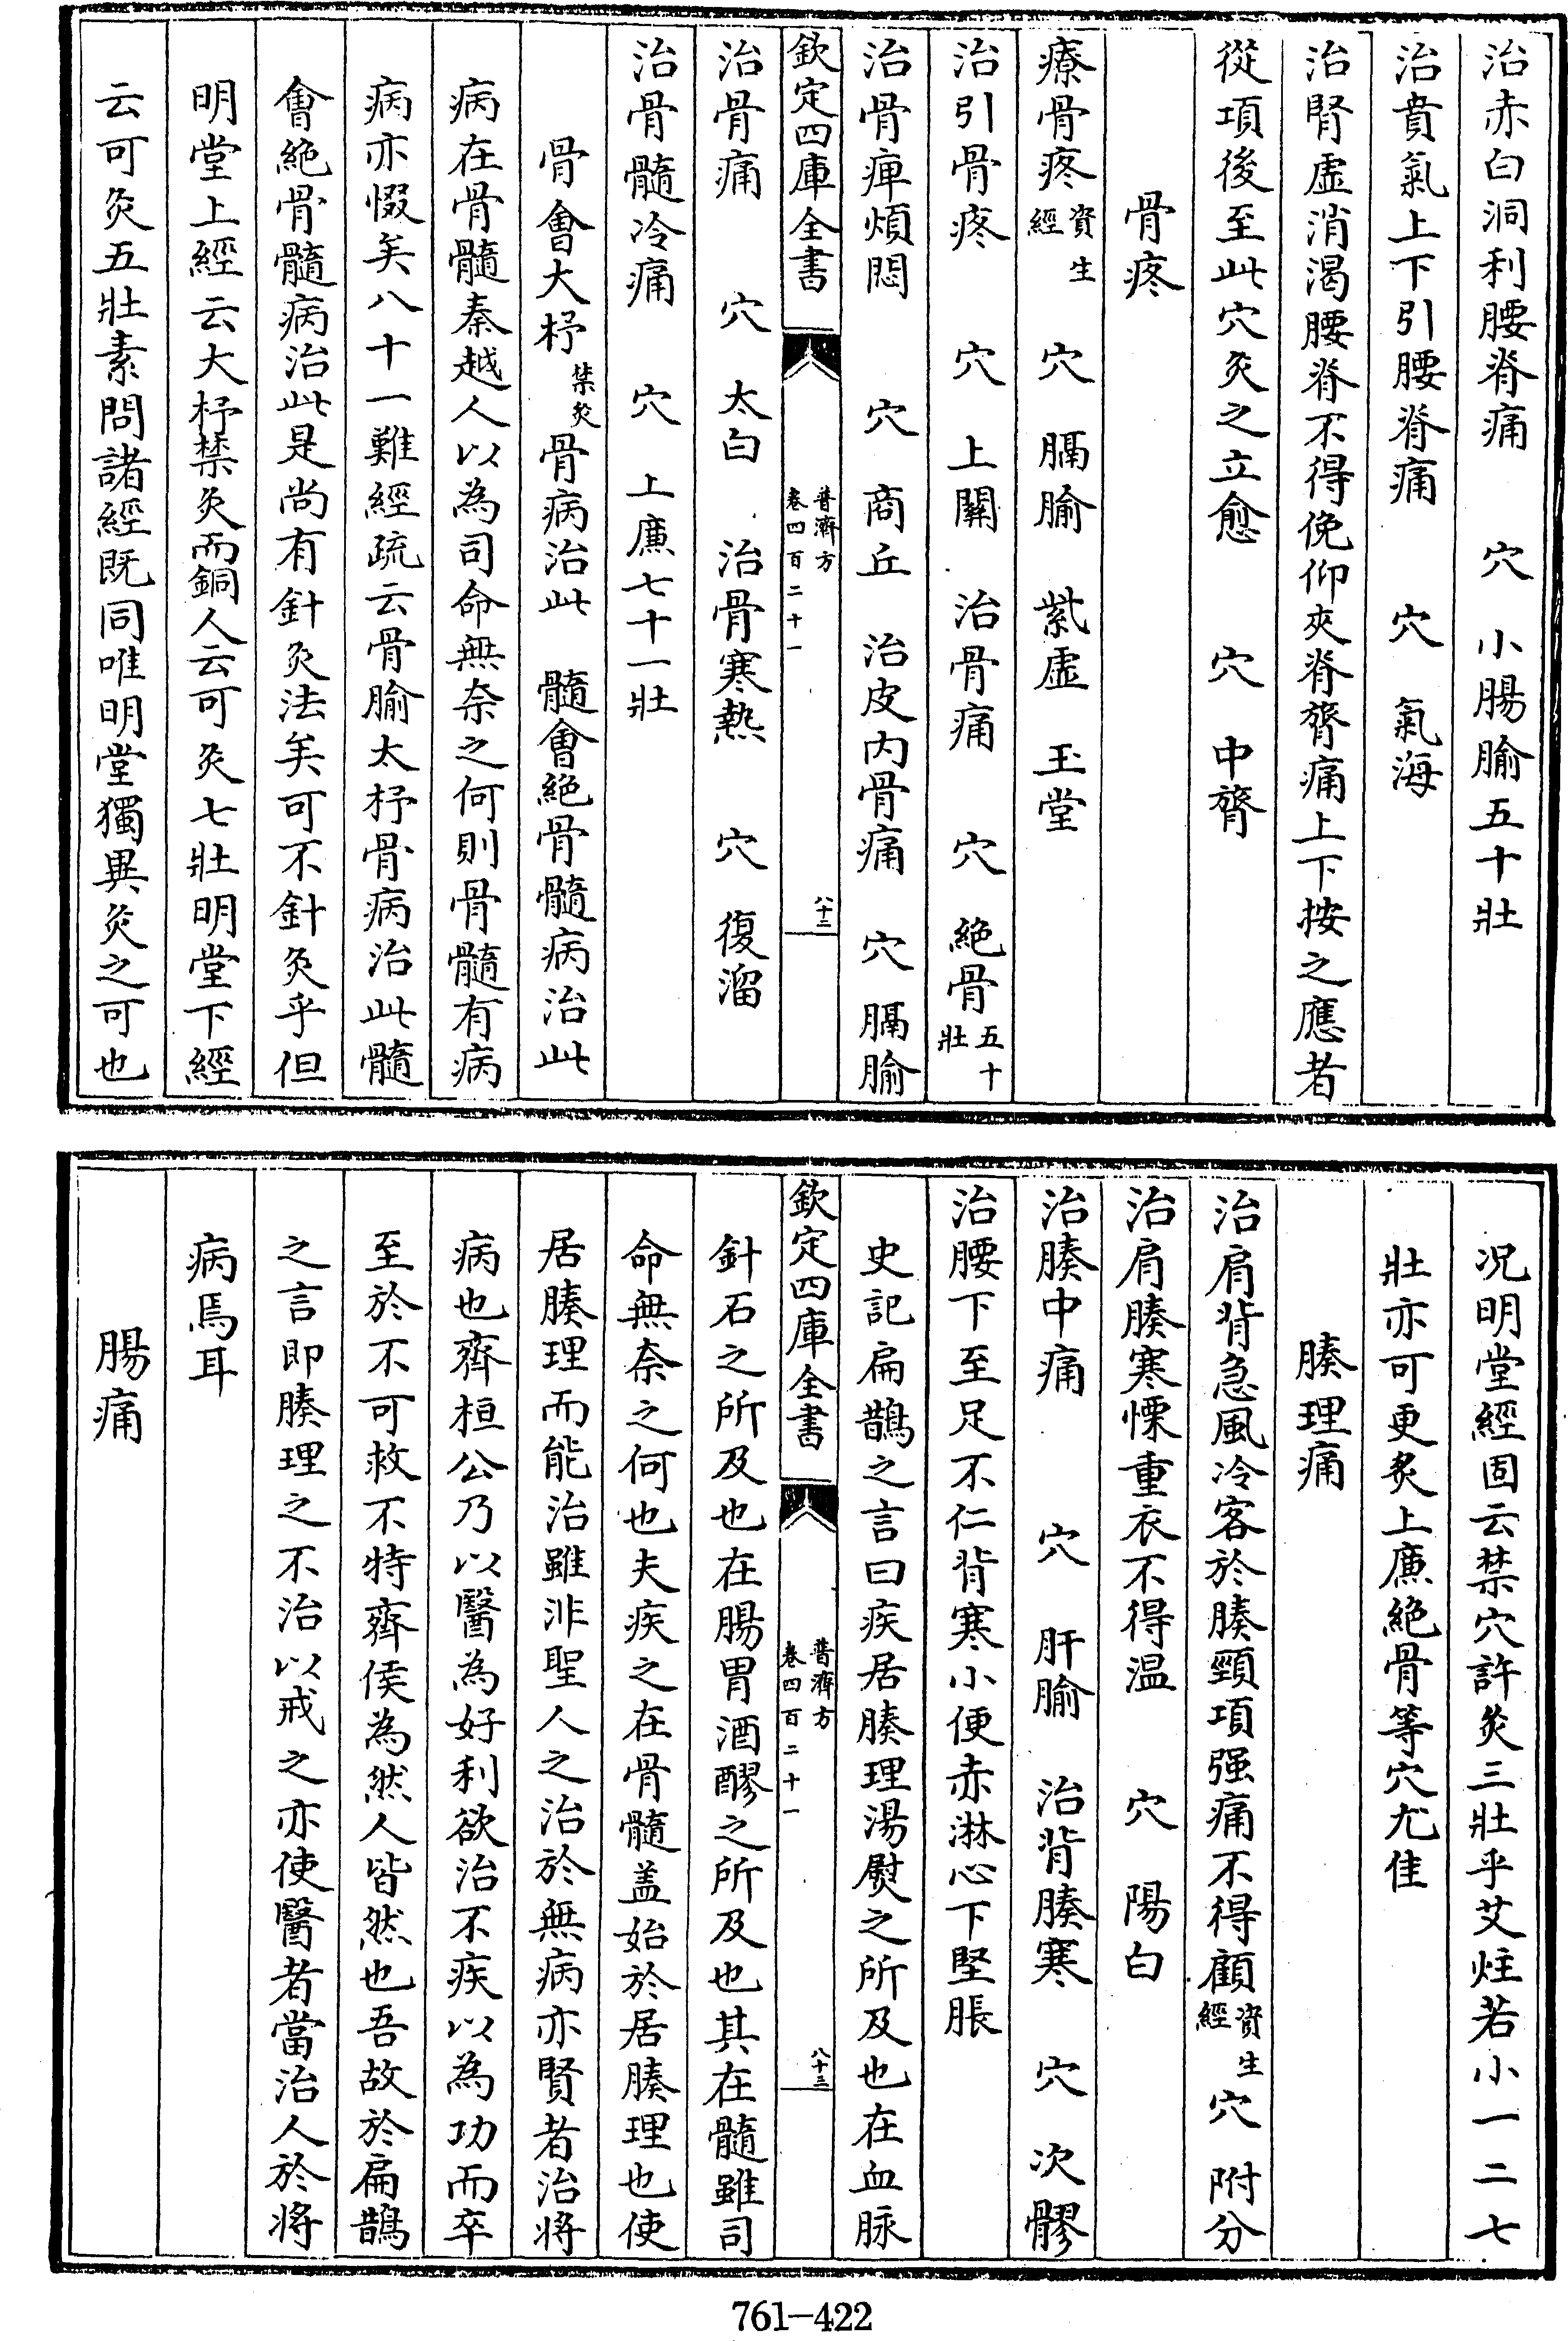 治赤白洞利腰脊痛　穴　小腸腧五十壯
治賁氣上下引腰脊痛　穴　氣海
治腎虚消渴腰脊不得俛仰夾脊膂痛上下按之應者
從項後至此穴灸之立愈　穴　中膂
骨疼
療骨疼資生經　穴　膈腧　紫虚　玉堂
治引骨疼　穴　上關　治骨痛　穴　絶骨五十壯
治骨痺煩悶　穴　商丘　治皮内骨痛　穴膈腧
欽定四庫全書　普濟方　卷四百二十一　八十二
治骨痛　穴　太白　治骨寒熱　穴　復溜
治骨髓冷痛　穴　上廉七十一壯
骨會大杼禁灸骨病治此　髓會絶骨髓病治此
病在骨髓秦越人以為司命無奈之何則骨髓有病
病亦惙矣八十一難經疏云骨腧太杼骨病治此髓
會絶骨髓病治此是尚有針灸法矣可不針灸乎但
明堂上經云大杼禁灸而銅人云可灸七壯明堂下經
云可灸五壯素問諸經既同唯明堂獨異灸之可也
况明堂經固云禁穴許灸三壯乎艾炷若小一二七
壯亦可更灸上廉絶骨等穴尤佳
腠理痛
治肩背急風冷客於腠頸項强痛不得顧資生經穴　附分
治肩腠寒慄重衣不得温　穴　陽白
治腠中痛　穴　肝腧　治背腠寒　穴　次髎
治腰下至足不仁背寒小便赤淋心下堅脹
史記扁鵲之言曰疾居腠理湯熨之所及也在血脉
欽定四庫全書　普濟方　卷四百二十一　八十三
針石之所及也在腸胃酒醪之所及也其在髓雖司
命無奈之何也夫疾之在骨髓盖始於居腠理也使
居腠理而能治雖非聖人之治於無病亦賢者治將
病也齊桓公乃以醫為好利欲治不疾以為功而卒
至於不可救不特齊侯為然人皆然也吾故於扁鵲
之言即腠理之不治以戒之亦使醫者當治人於將
病焉耳
腸痛
761—422